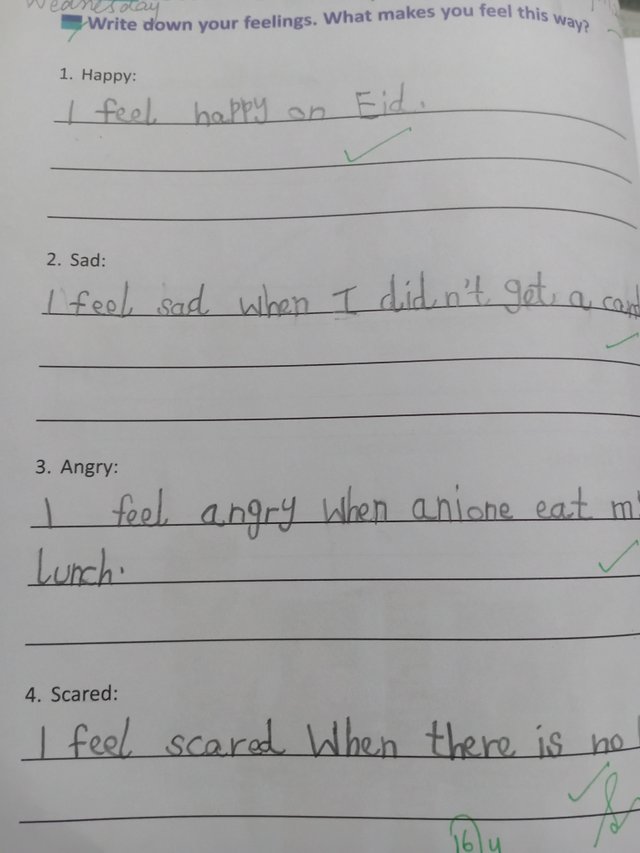 Wednesday
Write down your feelings. What makes you feel this way?
1. Happy:
I feel happy on Eid.
2. Sad:
I feel sad when I didn't get a card
3. Angry:
I feel angry when anione eat
Lunch.
4. Scared:
I feel scared When there is no
16 4